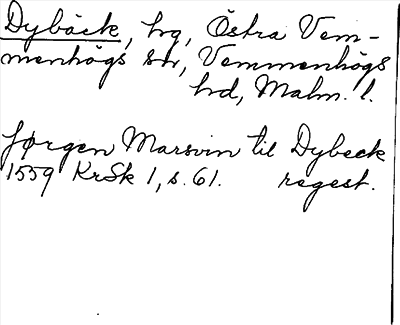 Dybäck, hg, Östra Vem-
menhögs sn, Vemmenhögs
hd, Malm. l.
Jørgen Marsvin til Dybeck
1559 KrSk 1, s. 61. regest.